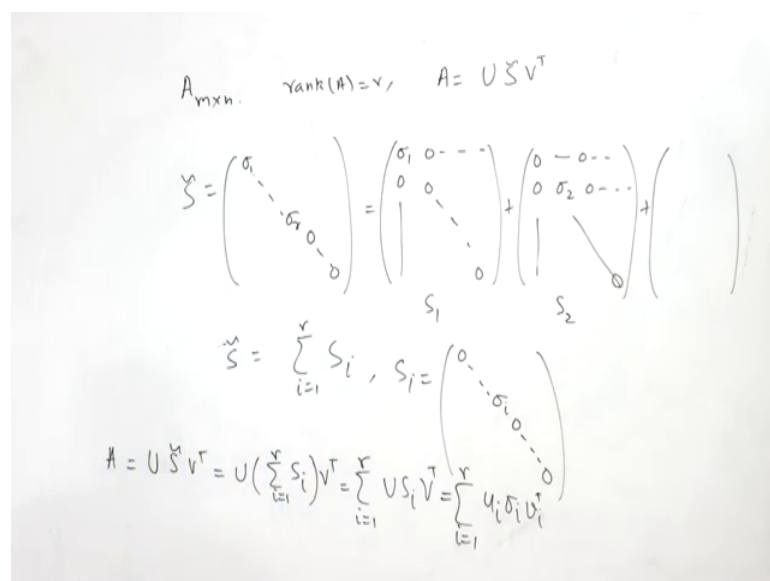 A_{m×n}. rank(A)=r, A= U Š V^T
Š = (σ_1 ⋱ σ_r 0 ⋱ 0) = (σ_1 0 - - - 0 0 ⋱ 0) + (0 — 0 - - 0 σ_2 0 - - - 0) + ( )
S_1 S_2
Š = ∑_{i=1}^{r} S_i , S_i = (0 ⋱ σ_i 0 ⋱ 0)
A = U Š V^T = U(∑_{i=1}^{r} S_i)V^T = ∑_{i=1}^{r} U S_i V^T = ∑_{i=1}^{r} u_i σ_i v_i^T